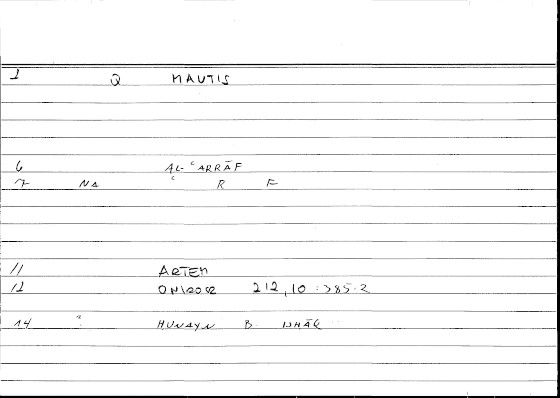 1 Q MAUTIS
6 AL-ʿARRĀF
7 NA ʿ R F
11 ARTEM
12 ONIROCR 212,10 : 385.2
14 ḤUNAYN B. ISHĀQ